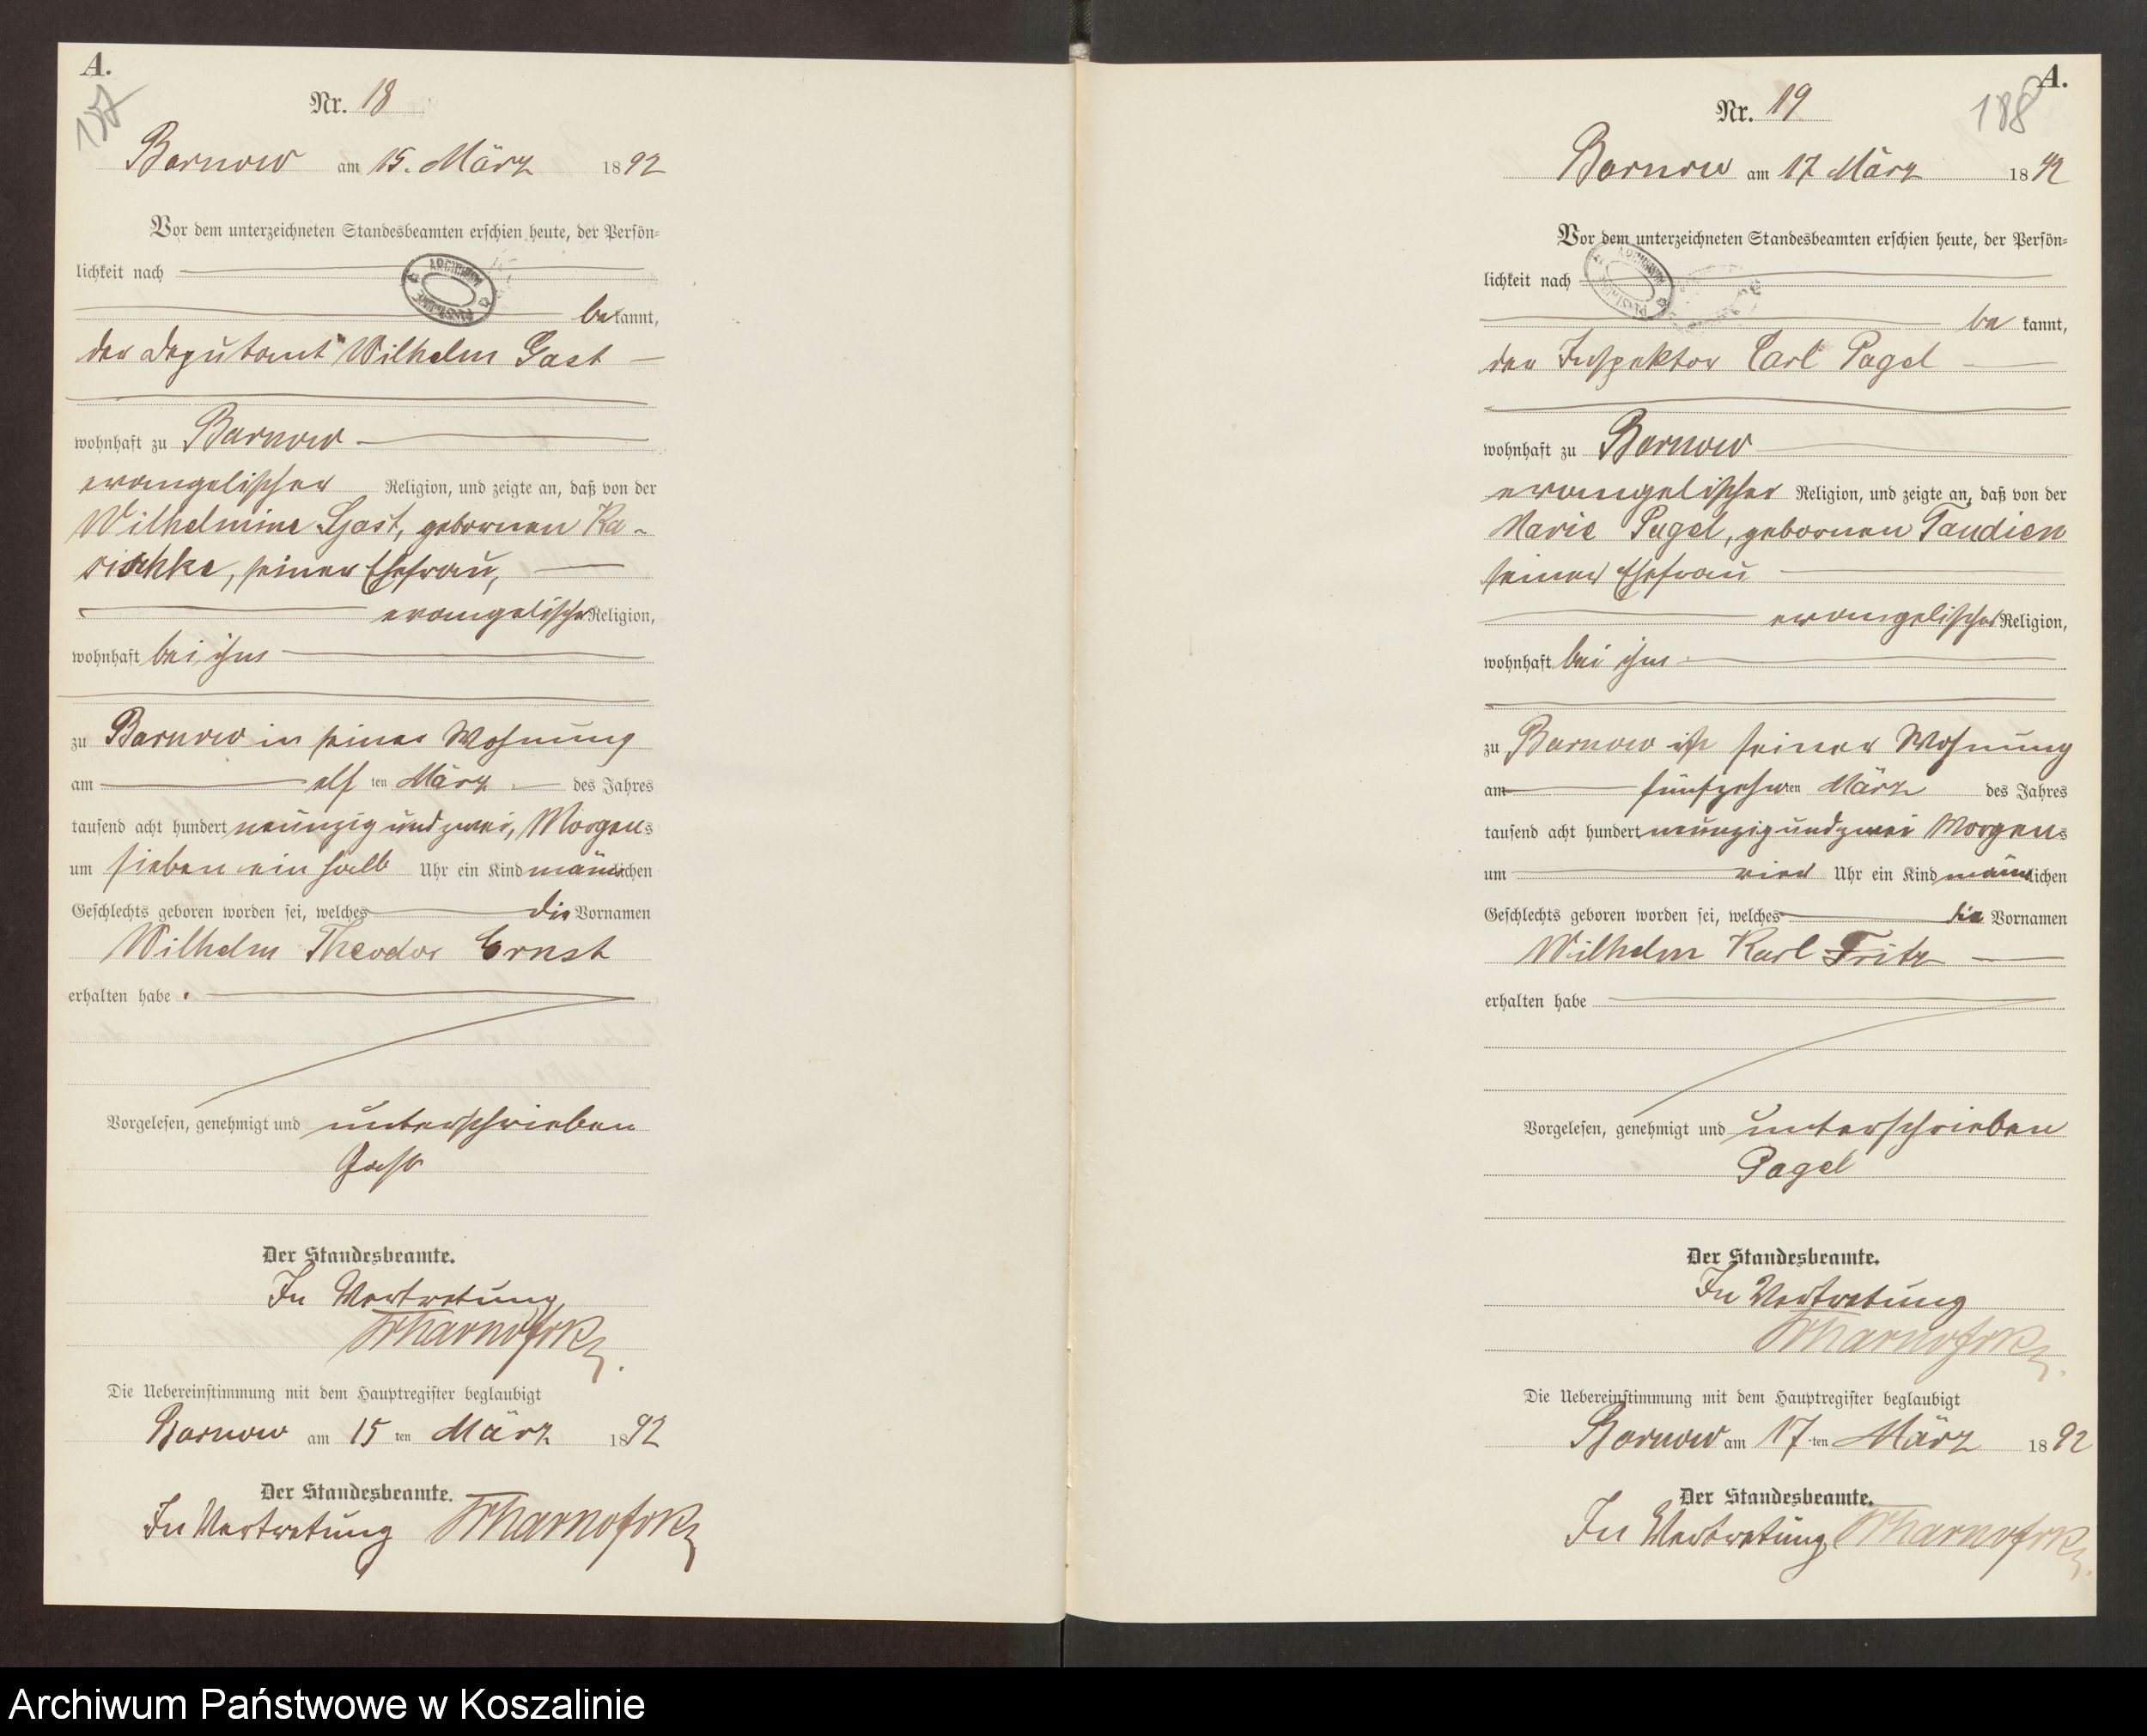 A.
187
Nr. 18
Barnow am 15. März 1892
Vor dem unterzeichneten Standesbeamten erschien heute, der Persön-
lichkeit nach
ARCHIWUM
bekannt,
der Deputant Wilhelm Gast
wohnhaft zu Barnow
evangelischer Religion, und zeigte an, daß von der
Wilhelmine Gast, gebornen Ka-
sischke, seiner Ehefrau,
evangelischer Religion,
wohnhaft bei ihm
zu Barnow in seiner Wohnung
am elf ten März des Jahres
tausend acht hundert neunzig und zwei, Morgens
um sieben ein halb Uhr ein Kind männlichen
Geschlechts geboren worden sei, welches die Vornamen
Wilhelm Theodor Ernst
erhalten habe.
Vorgelesen, genehmigt und unterschrieben
Gast
Der Standesbeamte.
In Vertretung
Die Uebereinstimmung mit dem Hauptregister beglaubigt
Barnow am 15 ten März 1892
Der Standesbeamte.
In Vertretung
A.
188
Nr. 19
Barnow am 17 März 1892
Vor dem unterzeichneten Standesbeamten erschien heute, der Persön-
lichkeit nach
ARCHIWUM
be kannt,
der Inspektor Carl Pagel
wohnhaft zu Barnow
evangelischer Religion, und zeigte an, daß von der
Marie Pagel, gebornen Taudien
seiner Ehefrau
evangelischer Religion,
wohnhaft bei ihm
zu Barnow in seiner Wohnung
am fünfzehnten März des Jahres
tausend acht hundert neunzig und zwei Morgens
um vier Uhr ein Kind männlichen
Geschlechts geboren worden sei, welches die Vornamen
Wilhelm Karl Fritz
erhalten habe
Vorgelesen, genehmigt und unterschrieben
Pagel
Der Standesbeamte.
In Vertretung
Die Uebereinstimmung mit dem Hauptregister beglaubigt
Barnow am 17 ten März 1892
Der Standesbeamte.
In Vertretung
Archiwum Państwowe w Koszalinie